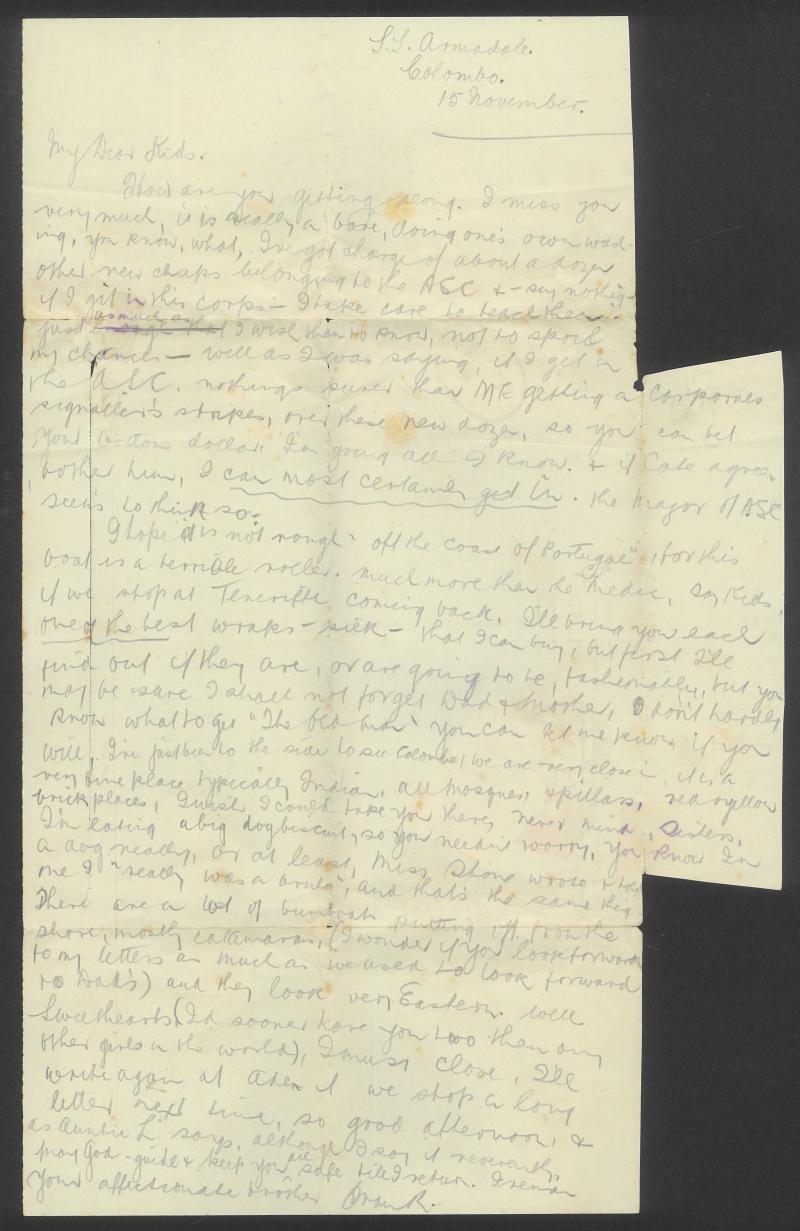 S.S. Armadale.
Colombo.
15 November.
My Dear Kids.
How are you getting along. I miss you
very much, it is really a bore, doing one's own wash-
ing, you know, what, I've got charge of about a dozen
other new chaps belonging to the ASC & - say nothing -
if I get in this corps - I take care to teach them
just as much as I wish them to know, not to spoil
my chances - well as I was saying, if I get in
the ASC. nothings surer than ME getting a Corporals
signaller's stripes, over these new dozen, so you can bet
your bottom dollar I'm going all I know. & if Cate agrees
bother him, I can most certainly get in. the Major of ASC
seems to think so.
I hope it is not rough "off the coast of Portugal", for this
boat is a terrible roller. much more than the Medic, say Kids,
if we stop at Teneriffe coming back, I'll bring you each
one of the best wraps - silk - that I can buy, but first I'll
find out if they are, or are going to be, fashionably, but you
may be sure I shall not forget Dad & Mother, I don't hardly
know what to get "The Old Man" you can let me know if you
will, I've just been to the side to see Colombo, we are very close in, it is a
very fine place typically Indian, all mosques, & pillars, red & yellow
brick places, I wish I could take you there, never mind, sisters,
I'm eating a big dog biscuit, so you needn't worry, you know I'm
a dog really, or at least, Miss Stone wrote & told
me I "really was a brute", and that's the same thing
There are a lot of bumboats putting off from the
shore, mostly catamarans, (I wonder if you look forward
to my letters as much as we used to look forward
to Dad's) and they look very Eastern. Well
Sweethearts (I'd sooner have you two than any
other girls in the world), I must close, I'll
write again at Aden if we stop a long
letter next time, so good afternoon, &
as Auntie L. says, although I say it reverently,
may God guide & keep you all safe till I return. I remain
Your affectionate brother Frank.